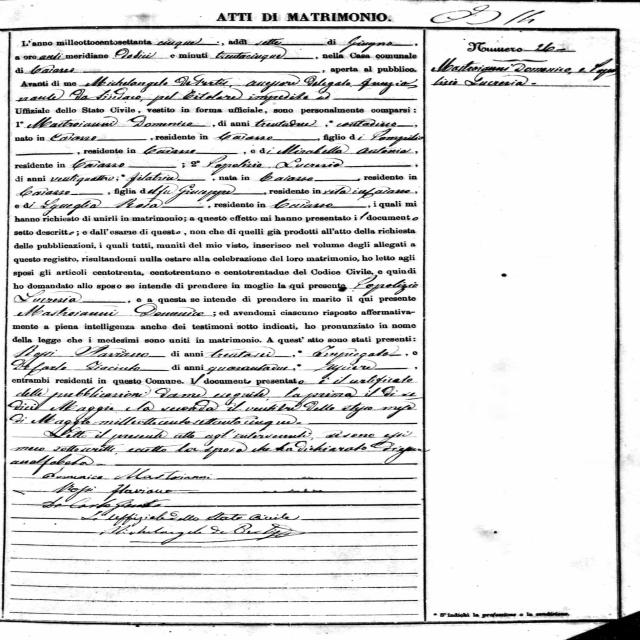 ATTI DI MATRIMONIO.
Numero 26
Mastroianni Domenico, e Popo
lizio Lucrezia
L'anno millottocentosettanta cinque, addì sette di Giugno,
a ore anti meridiane Dodici e minuti trentacinque, nella Casa comunale
di Caiazzo, aperta al pubblico.
Avanti di me Michelangelo de assessore delegato funzio
nante da sindaco, pel titolare impedito ed
Uffiziale dello Stato Civile, vestito in forma ufficiale, sono personalmente comparsi:
1° Mastroianni Domenico, di anni trentadue, * contadino
nato in Caiazzo, residente in Caiazzo, figlio di Pompilio
, residente in Caiazzo, e di Mirabella Antonia
residente in Caiazzo; 2° Popolizio Lucrezia di
anni ventiquattro: * filatrice, nata in Caiazzo, residente in
Caiazzo, figlia del fu Giuseppe residente in vita in Caiazzo,
e di Sgueglia Rosa, residente in Caiazzo, i quali mi
hanno richiesto di unirli in matrimonio; a questo effetto mi hanno presentato il documento
sotto descritto; e dall'esame di questo, non che di quelli già prodotti all'atto della richiesta
delle pubblicazioni, i quali tutti, muniti del mio visto, inserisco nel volume degli allegati a
questo registro, risultandomi nulla ostare alla celebrazione del loro matrimonio, ho letto agli
sposi gli articoli centotrenta, centotrentuno e centotrentadue del Codice Civile, e quindi
ho domandato allo sposo se intende di prendere in moglie la qui presente Popolizio
Lucrezia, e a questa se intende di prendere in marito il qui presente
Mastroianni Domenico; ed avendomi ciascuno risposto affermativa-
mente a piena intelligenza anche dei testimoni sotto indicati, ho pronunziato in nome
della legge che i medesimi sono uniti in matrimonio. A quest' atto sono stati presenti:
Rossi Flaviano di anni trentasei * Impiegato, e
De Carlo di anni quarantadue * Usciere
entrambi residenti in questo Comune. Il documento presentato è il certificato
delle pubblicazioni da me eseguite, la prima il dì se
dici Maggio e la seconda il ventitre dello stesso mese
di Maggio milleottocento settantacinque.
Letto il presente atto agl' intervenuti, si sono essi
meco sottoscritti, eccetto la sposa che ha dichiarato di essere
analfabeta.
Domenico Mastroianni
Rossi Flaviano
De Carlo
L' Uffiziale dello Stato Civile
Michelangelo de
* S'indichi la professione o la condizione.